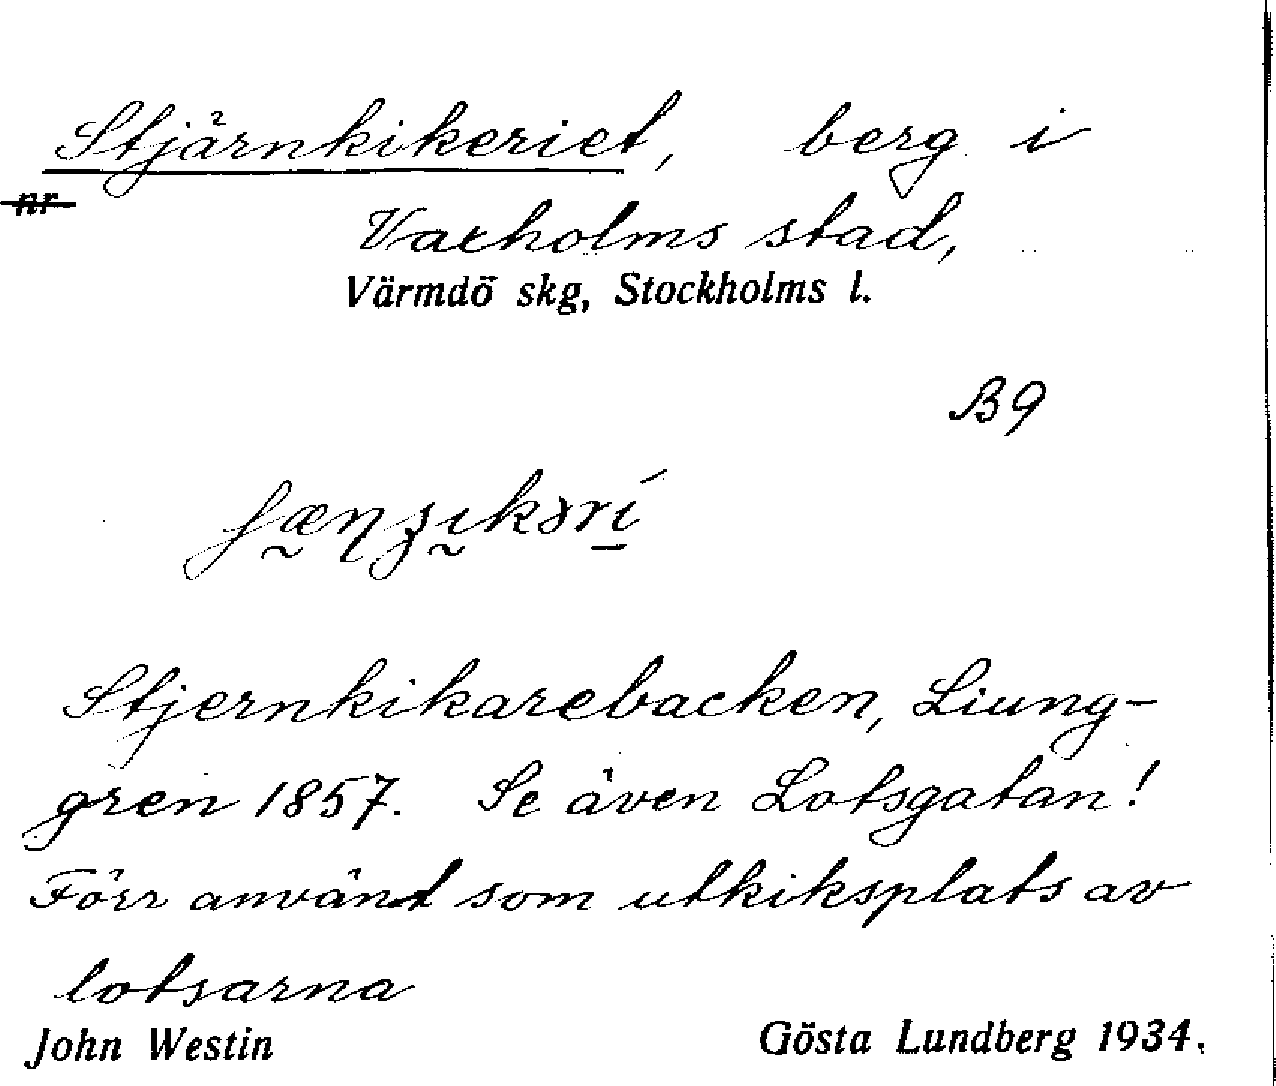 Stjärnkikeriet, berg i
~~nr~~
Vaxholms stad,
Värmdö skg, Stockholms l.
B9
Stjernkikarebacken, Liung-
gren 1857. Se även Lotsgatan!
Förr använt som utkiksplats av
lotsarna
John Westin Gösta Lundberg 1934.